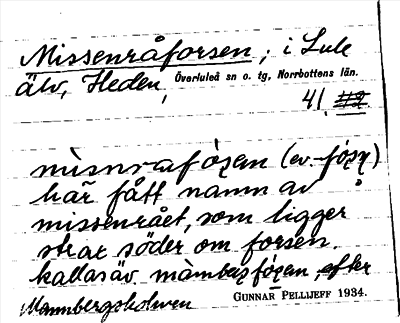 Missenråforsen, i Lule
älv, Heden, Överluleå sn o. tg, Norrbottens län.
41
mìsnrafósen (ev. -fósn)
har fått namn av
missenrået, som ligger
strax söder om forsen.
kallas äv. màmbasfósen efter
Mannbergsholmen
GUNNAR PELLIJEFF 1934.